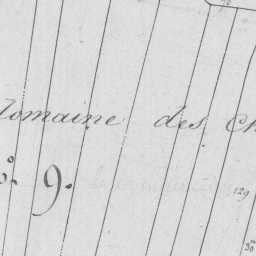 domaine des Ch
o. 9.
129
30